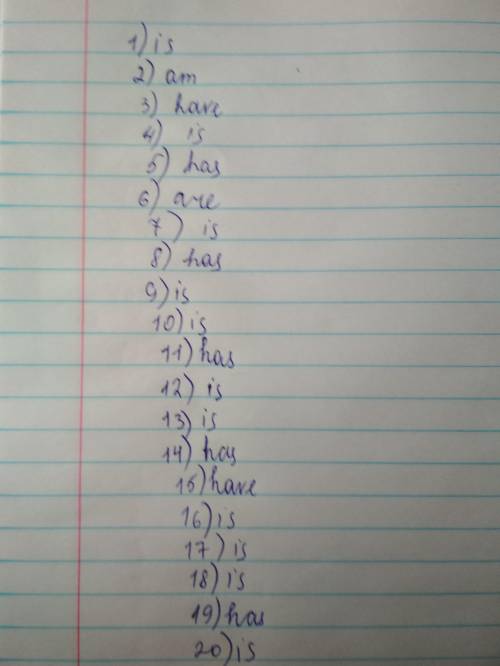 1) is
2) am
3) have
4) is
5) has
6) are
7) is
8) has
9) is
10) is
11) has
12) is
13) is
14) has
15) have
16) is
17) is
18) is
19) has
20) is